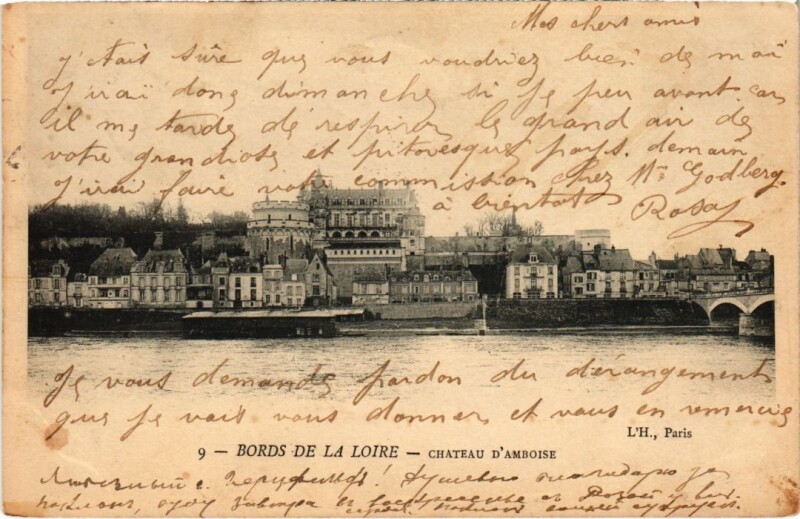 Mes chers amis
j'étais sûre que vous voudriez bien de moi
J'irai donc dimanche si je peu avant. car
il me tarde de respirer le grand air de
votre grandiose et pitoresque pays. demain
J'irai faire votre commission chez Mr Godberg.
à bientôt Rosa
Je vous demande pardon du dérangement
que je vais vous donner et vous en remercie
L'H., Paris
9 — BORDS DE LA LOIRE — CHATEAU D'AMBOISE
! Душевно благодарю за
завтра в воскресенье с Розой